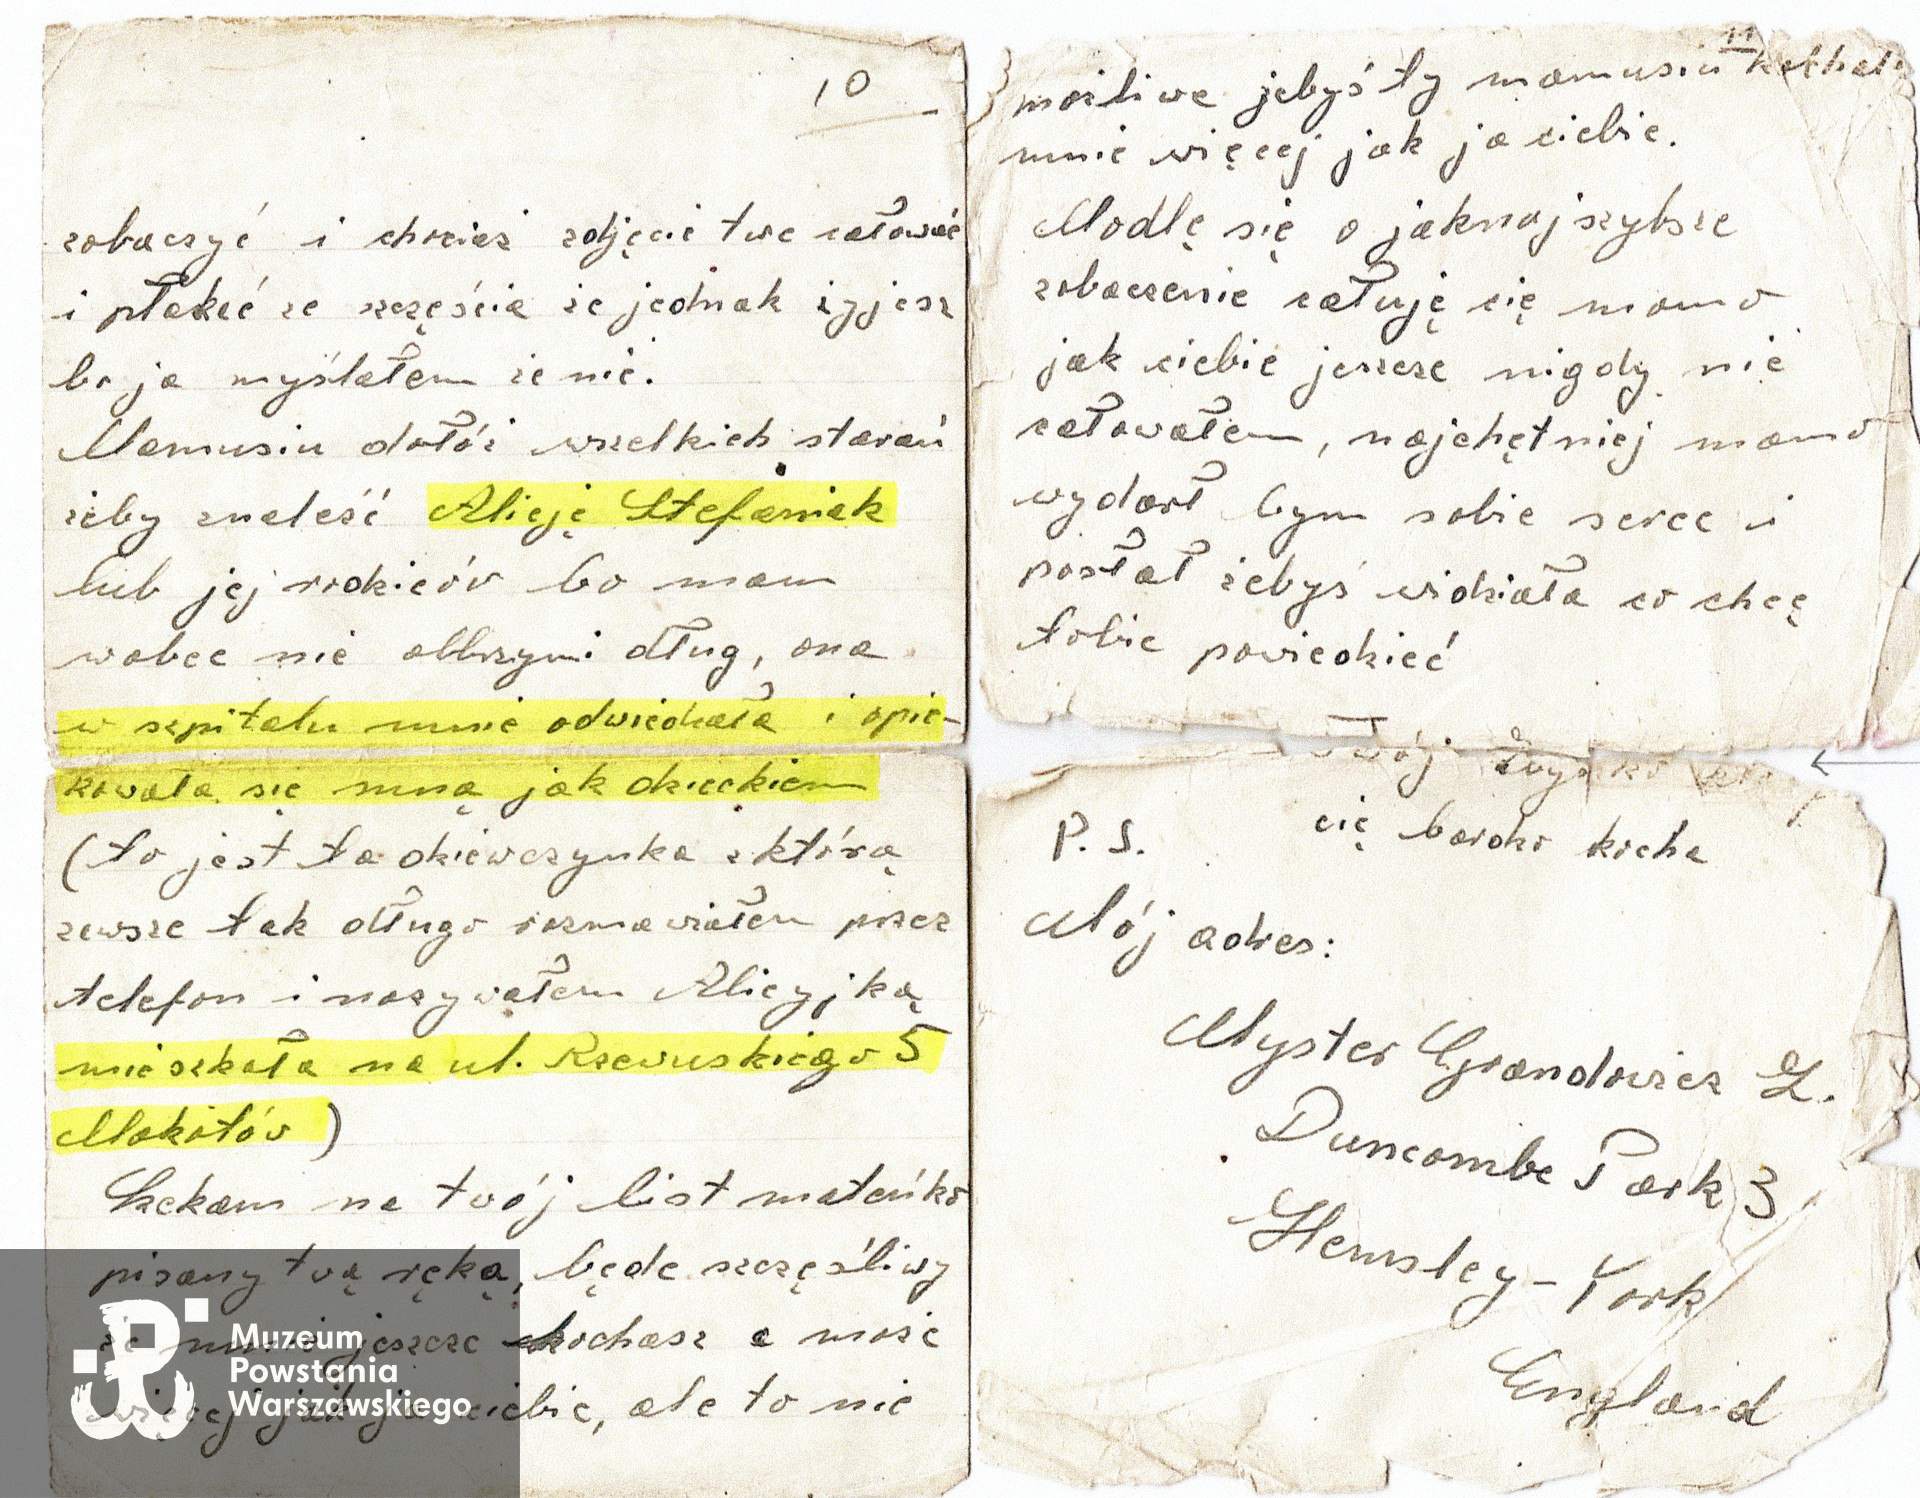 10
zobaczyć i chociaż zdjęcie twe całować
i płakać ze szczęścia że jednak żyjesz
bo ja myślałem że nie.
Mamusiu dołóż wszelkich starań
żeby znaleść Alicję Stefaniak
lub jej rodziców bo mam
wobec nie olbrzymi dług, ona
w szpitalu mnie odwiedzała i opie-
kowała się mną jak dzieckiem
(to jest ta dziewczynka z którą
zawsze tak długo rozmawiałem przez
telefon i nazywałem Alicyjką
mieszkała na ul. Rzewuskiego 5
Mokotów)
Czekam na twój list mateńko
pisany twą ręką, będe szczęśliwy
że mnie jeszcze kochasz a może
więcej jak ja ciebie, ale to nie
11
możliwe żebyś ty mamusiu kochała
mnie więcej jak ja ciebie.
Modlę się o jaknajszybsze
zobaczenie całuję cię mamo
jak ciebie jeszcze nigdy nie
całowałem, najchętniej mamo
wydarł bym sobie serce i
posłał żebyś widziała co chcę
tobie powiedzieć
Twój
cię bardzo kocha
P.S.
Mój adres:
Myster Grandowicz Z.
Duncombe Park 3
Hemsley - York
England
Muzeum
Powstania
Warszawskiego